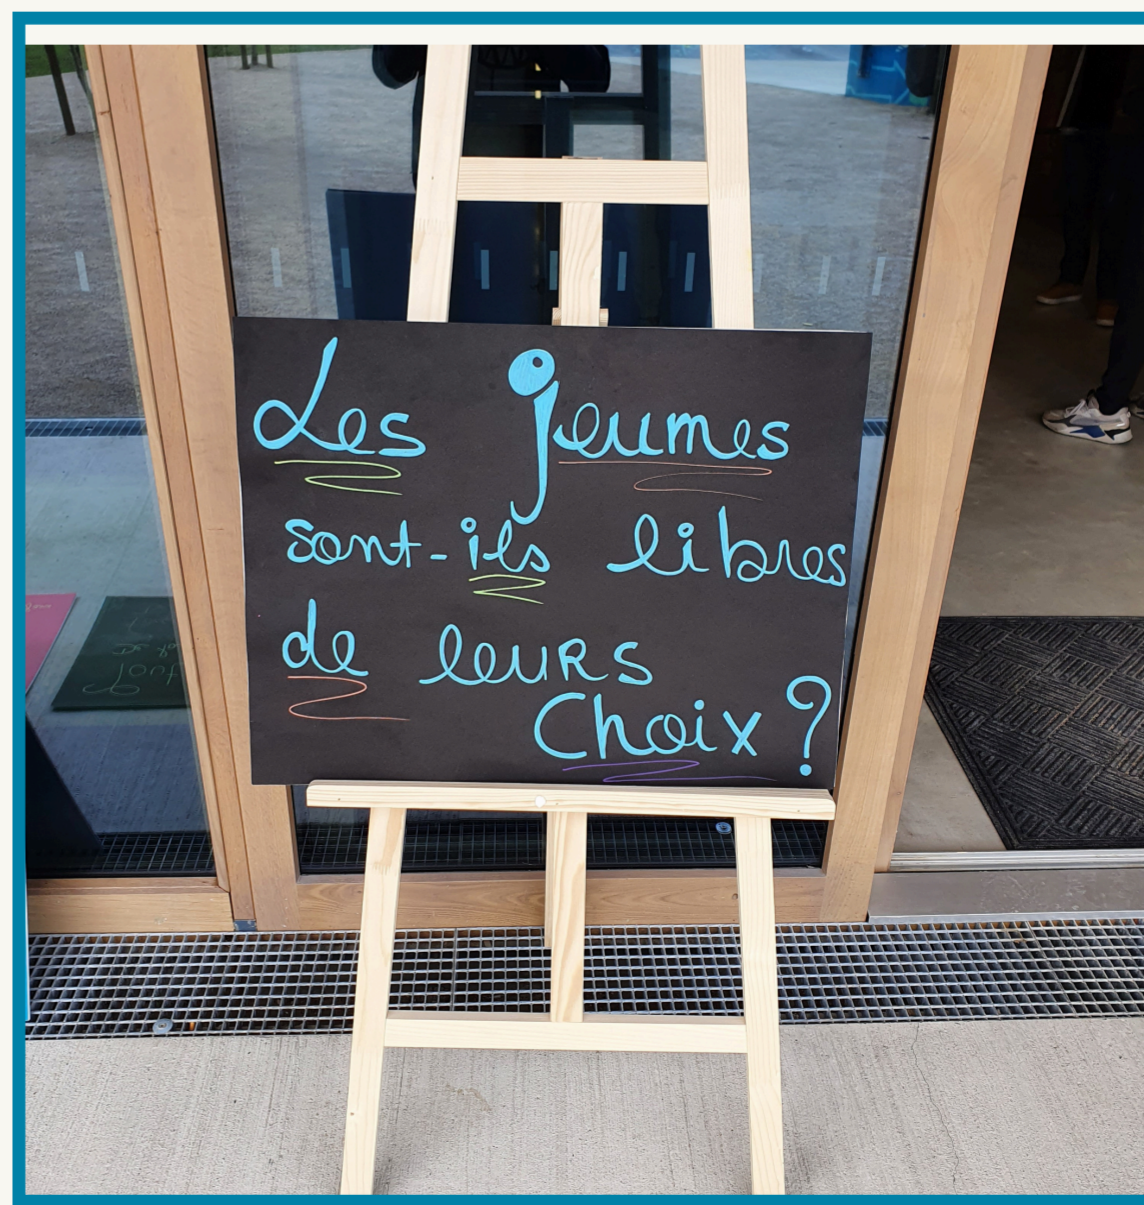 Les jeunes
sont-ils libres
de leurs
Choix ?